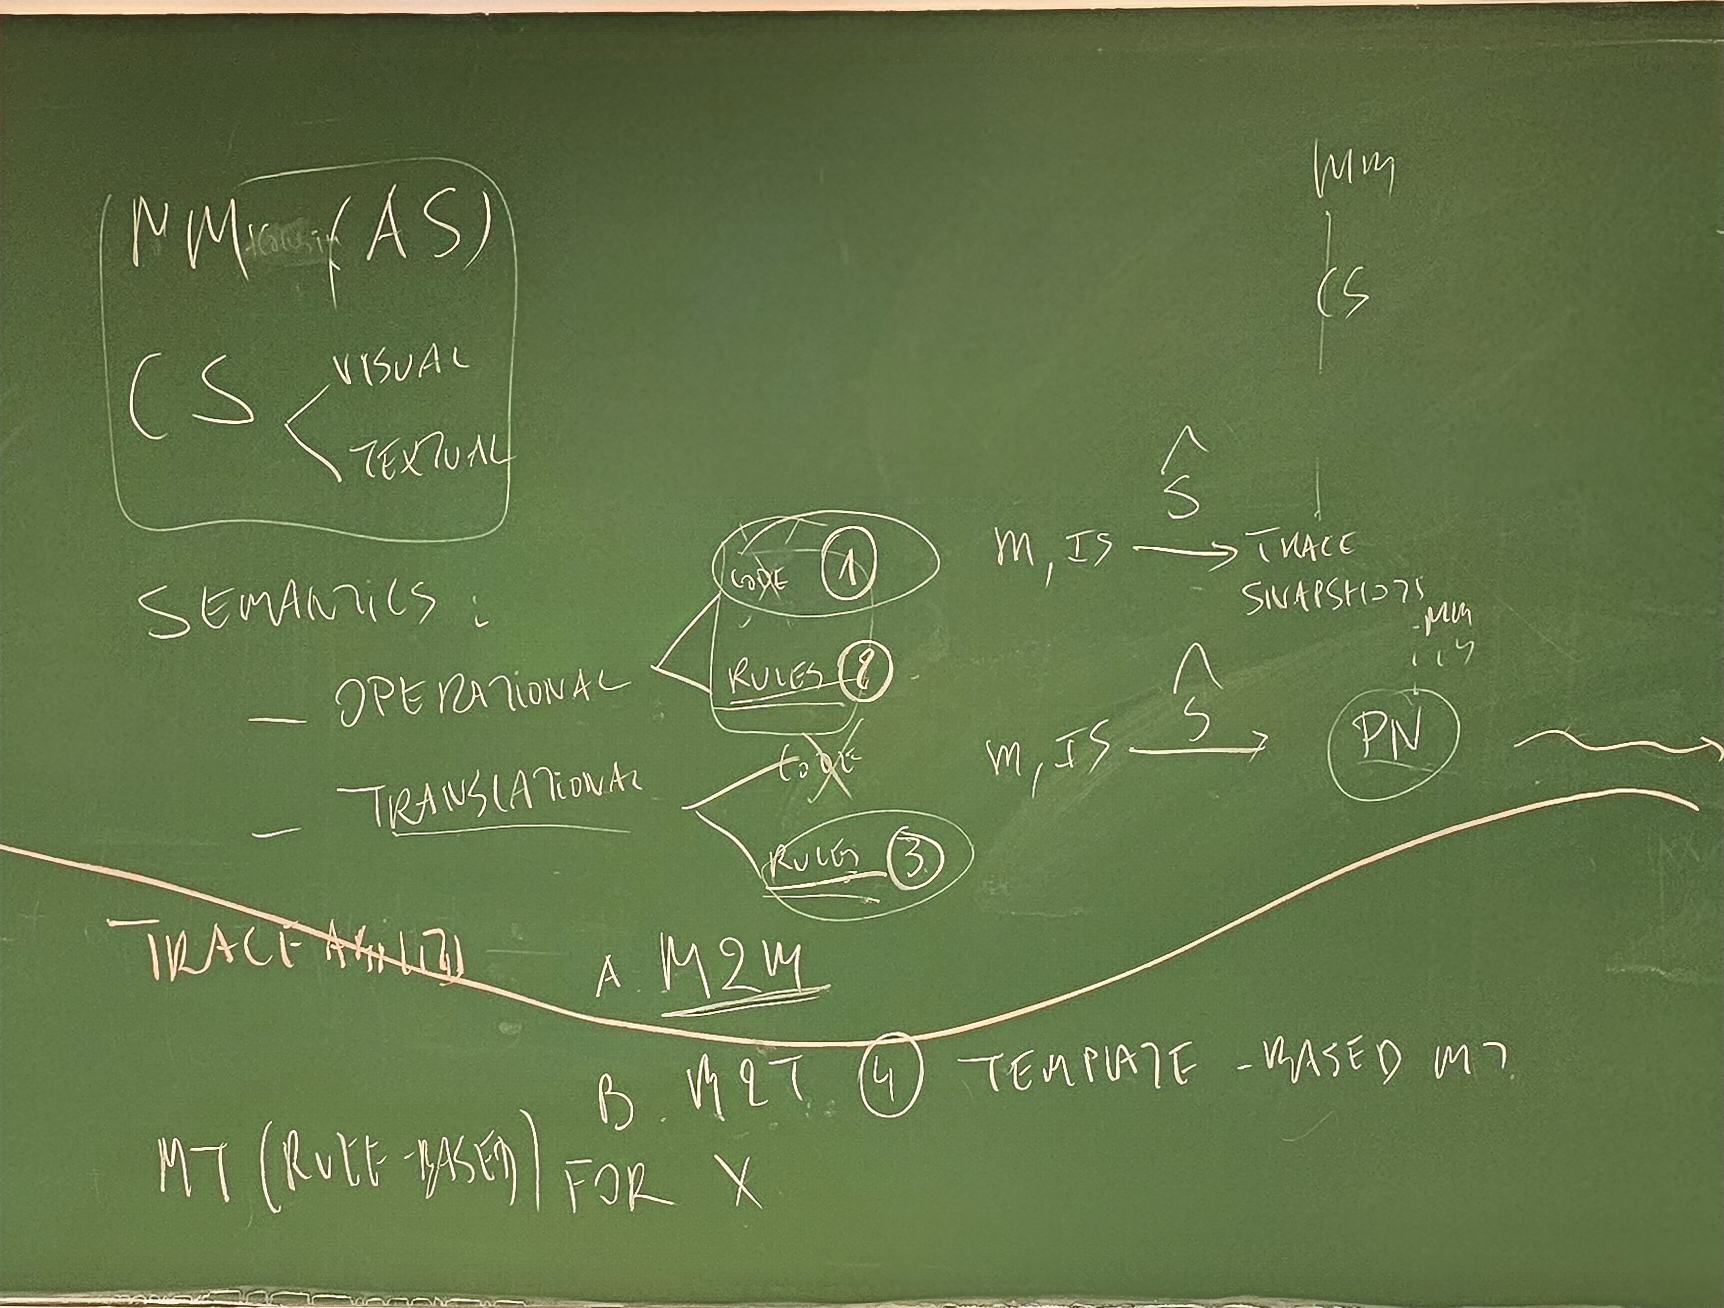 MM (AS)
CS
VISUAL
TEXTUAL
SEMANTICS :
- OPERATIONAL
CODE 1
RULES 2
- TRANSLATIONAL
CODE
RULES 3
MM
CS
S
M, IS → TRACE
SNAPSHOTS
MM
S
M, IS → PN
TRACEABILITY
A. M2M
B. M2T 4 TEMPLATE-BASED MT
MT (RULE-BASED) FOR X